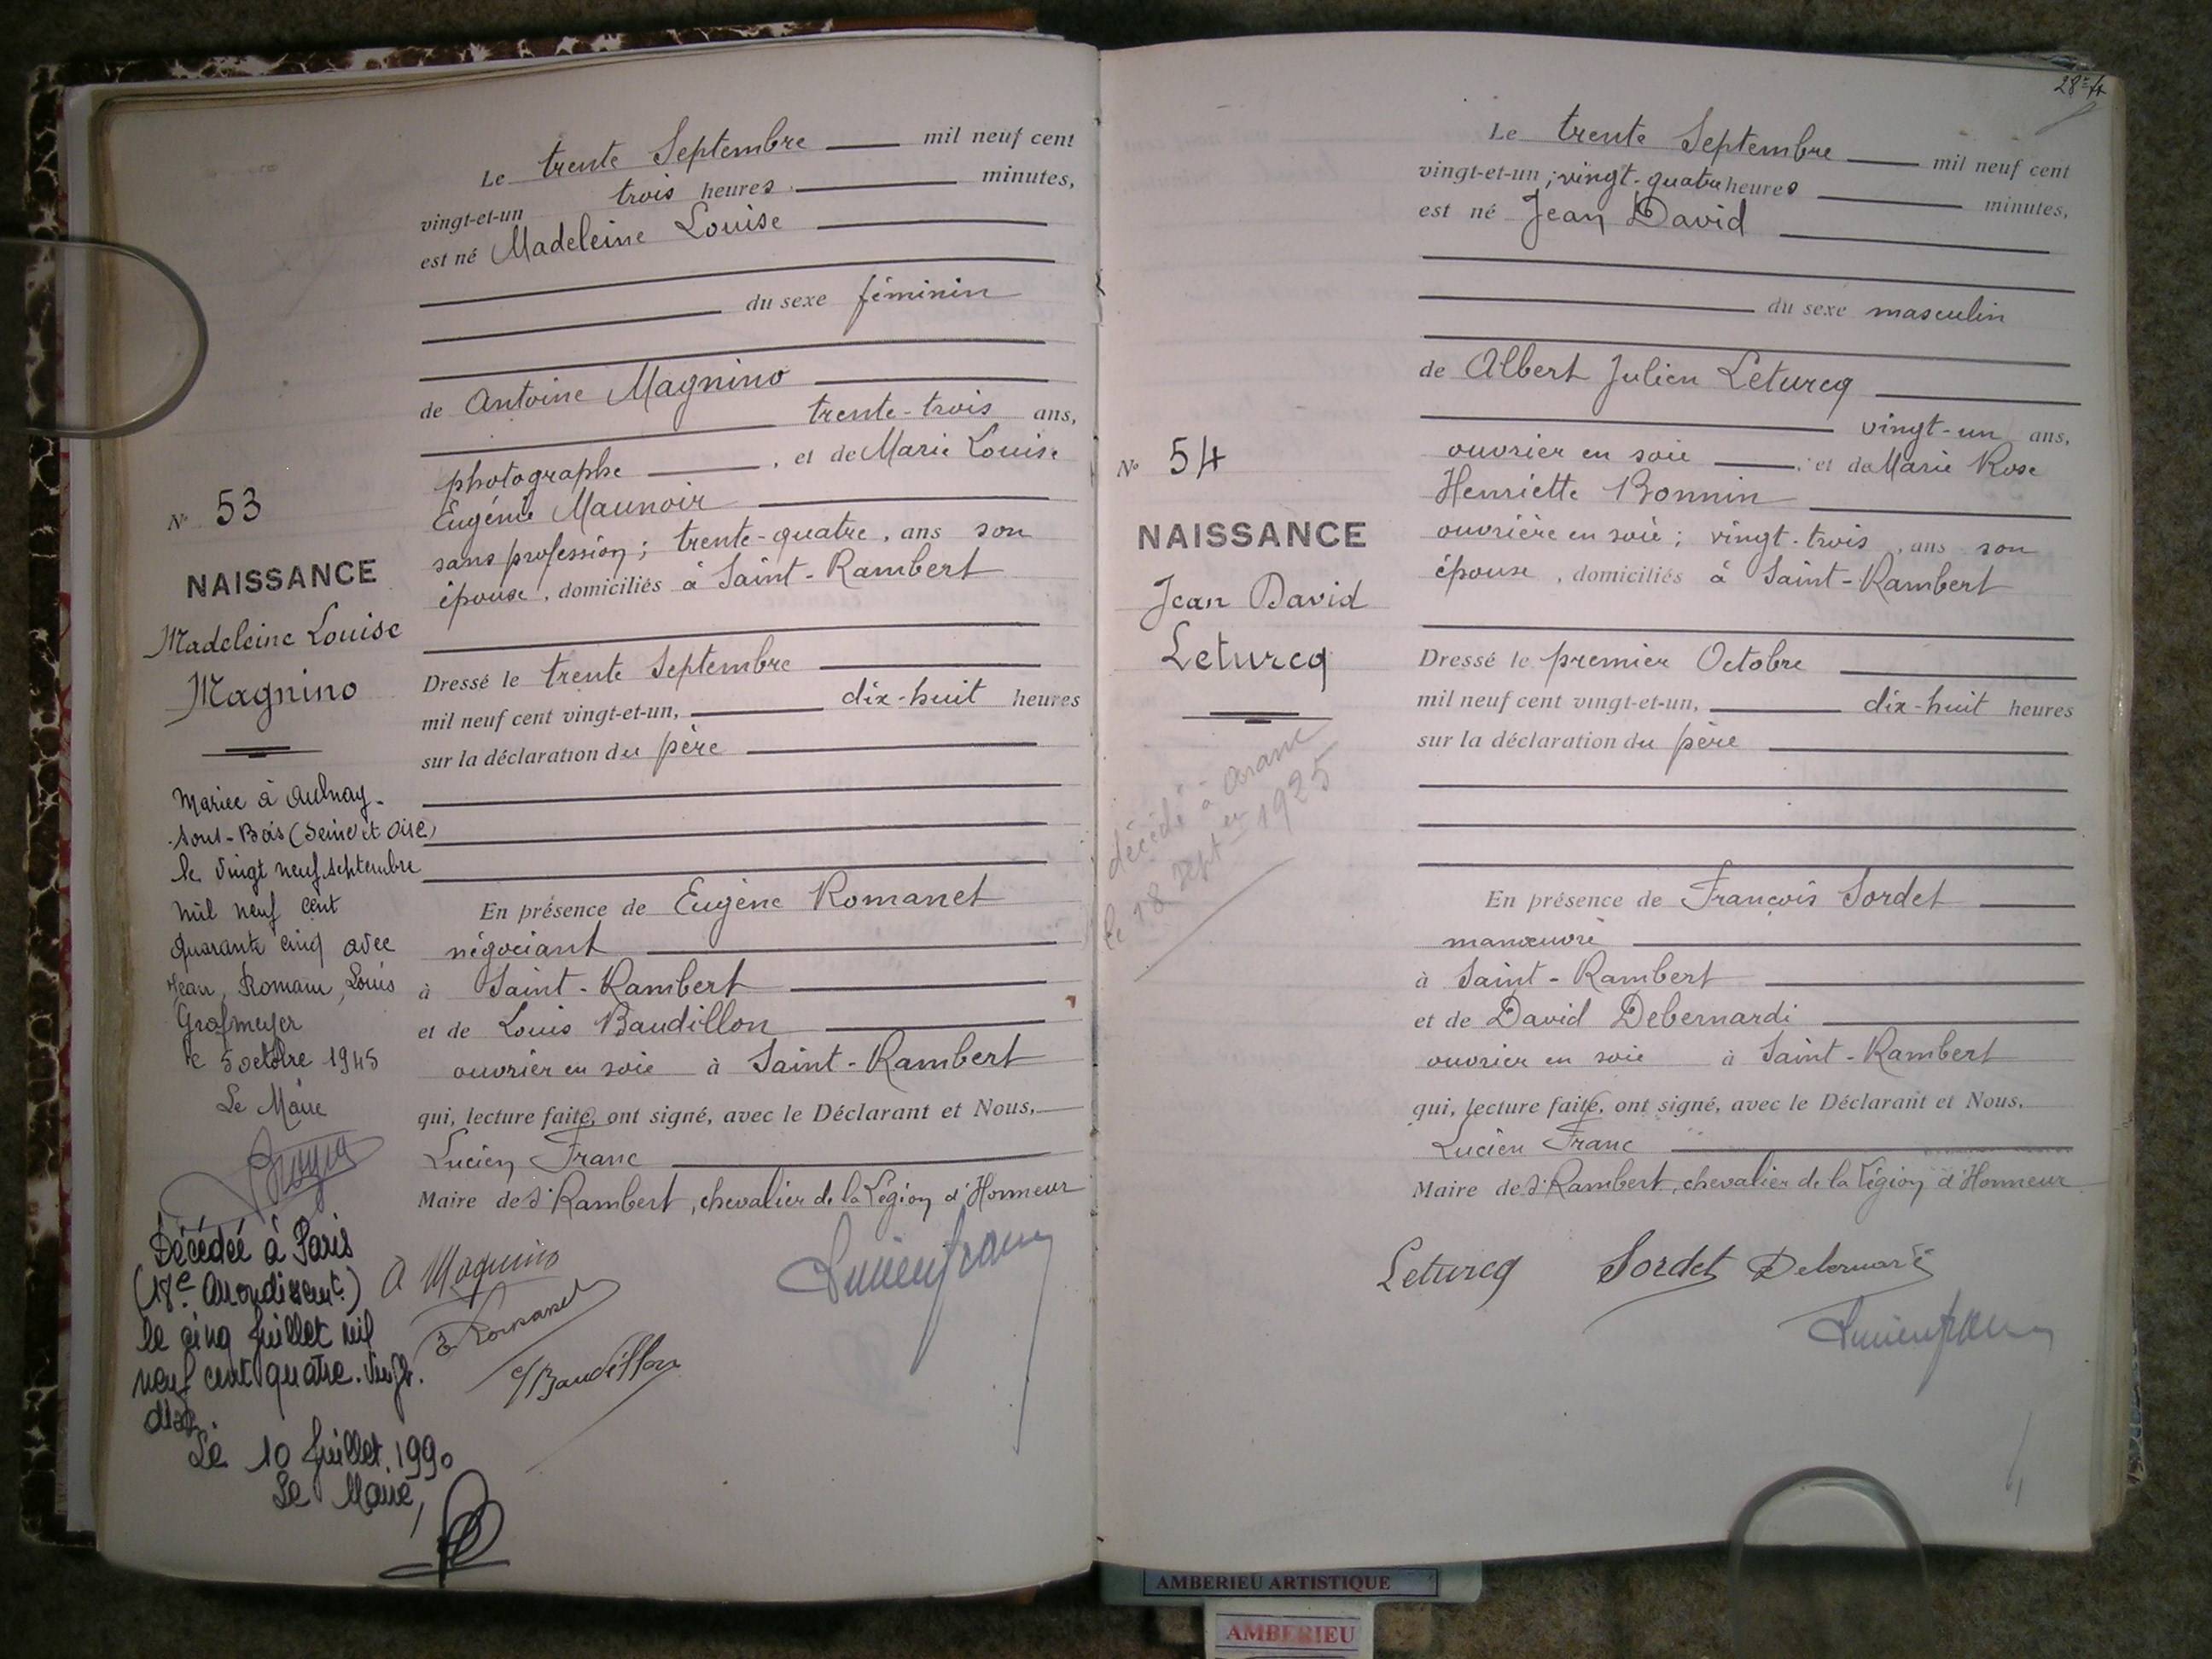 Le trente Septembre mil neuf cent
vingt-et-un trois heures minutes,
est né Madeleine Louise
du sexe féminin
de Antoine Magnino
trente-trois ans,
photographe , et de Marie Louise
Eugénie Maunoir
sans profession; trente-quatre, ans son
épouse, domiciliés à Saint-Rambert
Dressé le trente Septembre
mil neuf cent vingt-et-un, dix-huit heures
sur la déclaration du père
En présence de Eugène Romanet
négociant
à Saint-Rambert
et de Louis Baudillon
ouvrier en soie à Saint-Rambert
qui, lecture faite, ont signé, avec le Déclarant et Nous,
Lucien Franc
Maire de St Rambert, chevalier de la Légion d'Honneur
A Magnino
E Romanet
Baudillon
Lucien Franc
N° 53
NAISSANCE
Madeleine Louise
Magnino
Mariée à Aulnay-
sous-Bois (Seine et Oise)
le vingt neuf septembre
mil neuf cent
quarante cinq avec
Jean, Romain, Louis
Grafmeyer
le 5 octobre 1945
Le Maire
Décédée à Paris
(18e Arrondissemt.)
le cinq juillet mil
neuf cent quatre-vingt-
dix.
Le 10 juillet 1990
Le Maire,
28e
Le trente Septembre mil neuf cent
vingt-et-un; vingt-quatre heures minutes,
est né Jean David
du sexe masculin
de Albert Julien Leturcq
vingt-un ans,
ouvrier en soie , et de Marie Rose
Henriette Bonnin
ouvrière en soie; vingt-trois, ans son
épouse, domiciliés à Saint-Rambert
Dressé le premier Octobre
mil neuf cent vingt-et-un, dix-huit heures
sur la déclaration du père
En présence de François Sordet
manœuvre
à Saint-Rambert
et de David Debernardi
ouvrier en soie à Saint-Rambert
qui, lecture faite, ont signé, avec le Déclarant et Nous,
Lucien Franc
Maire de St Rambert, chevalier de la Légion d'Honneur
Leturcq Sordet Debernardi
Lucien Franc
N° 54
NAISSANCE
Jean David
Leturcq
décédé à Aranc
le 18 Sept 1925
AMBERIEU ARTISTIQUE
AMBERIEU